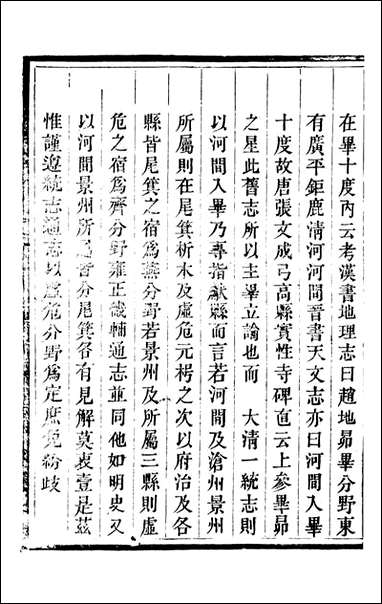 在畢十度內云考漢書地理志曰趙地昴畢分野東
有廣平鉅鹿清河河間晉書天文志亦曰河間入畢
十度故唐張文成弓高縣實性寺碑直云上參畢昴
之星此舊志所以主畢立論也而　大清一統志則
以河間入畢乃專指獻縣而言若河間及滄州景州
所屬則在尾箕析木及虛危元枵之次以府治及各
縣皆尾箕之宿爲燕分野若景州及所屬三縣則虛
危之宿爲齊分野雍正畿輔通志並同他如明史又
以河間景州所屬皆分尾箕各有見解莫衷壹是茲
惟謹遵統志通志以虛危分野爲定庶免紛歧